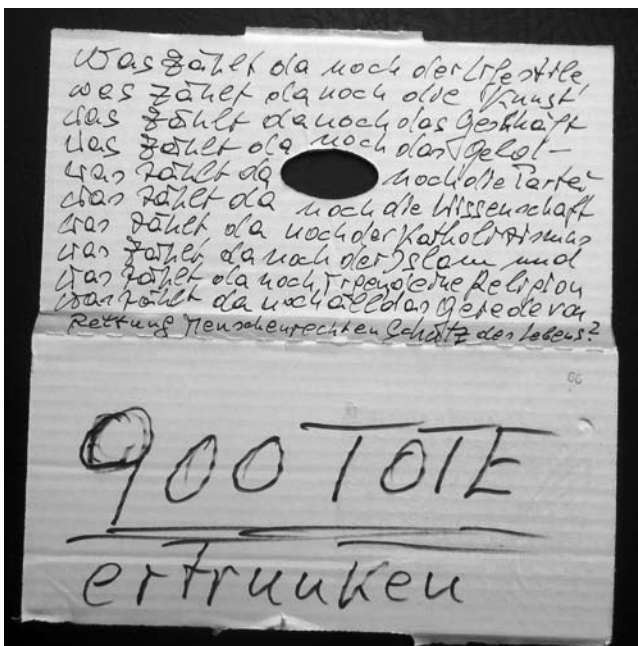 Was zählt da noch der Lifestile
was zählt da noch die Kunst
was zählt da noch das Geschäft
was zählt da noch das Geld –
was zählt da noch die Partei
was zählt da noch die Wissenschaft
was zählt da noch der Katholizismus
was zählt da noch der Islam und
was zählt da noch irgendeine Religion
was zählt da noch all das Gerede von
Rettung Menschenrechten Schutz des Lebens?
900 TOTE
ertrunken